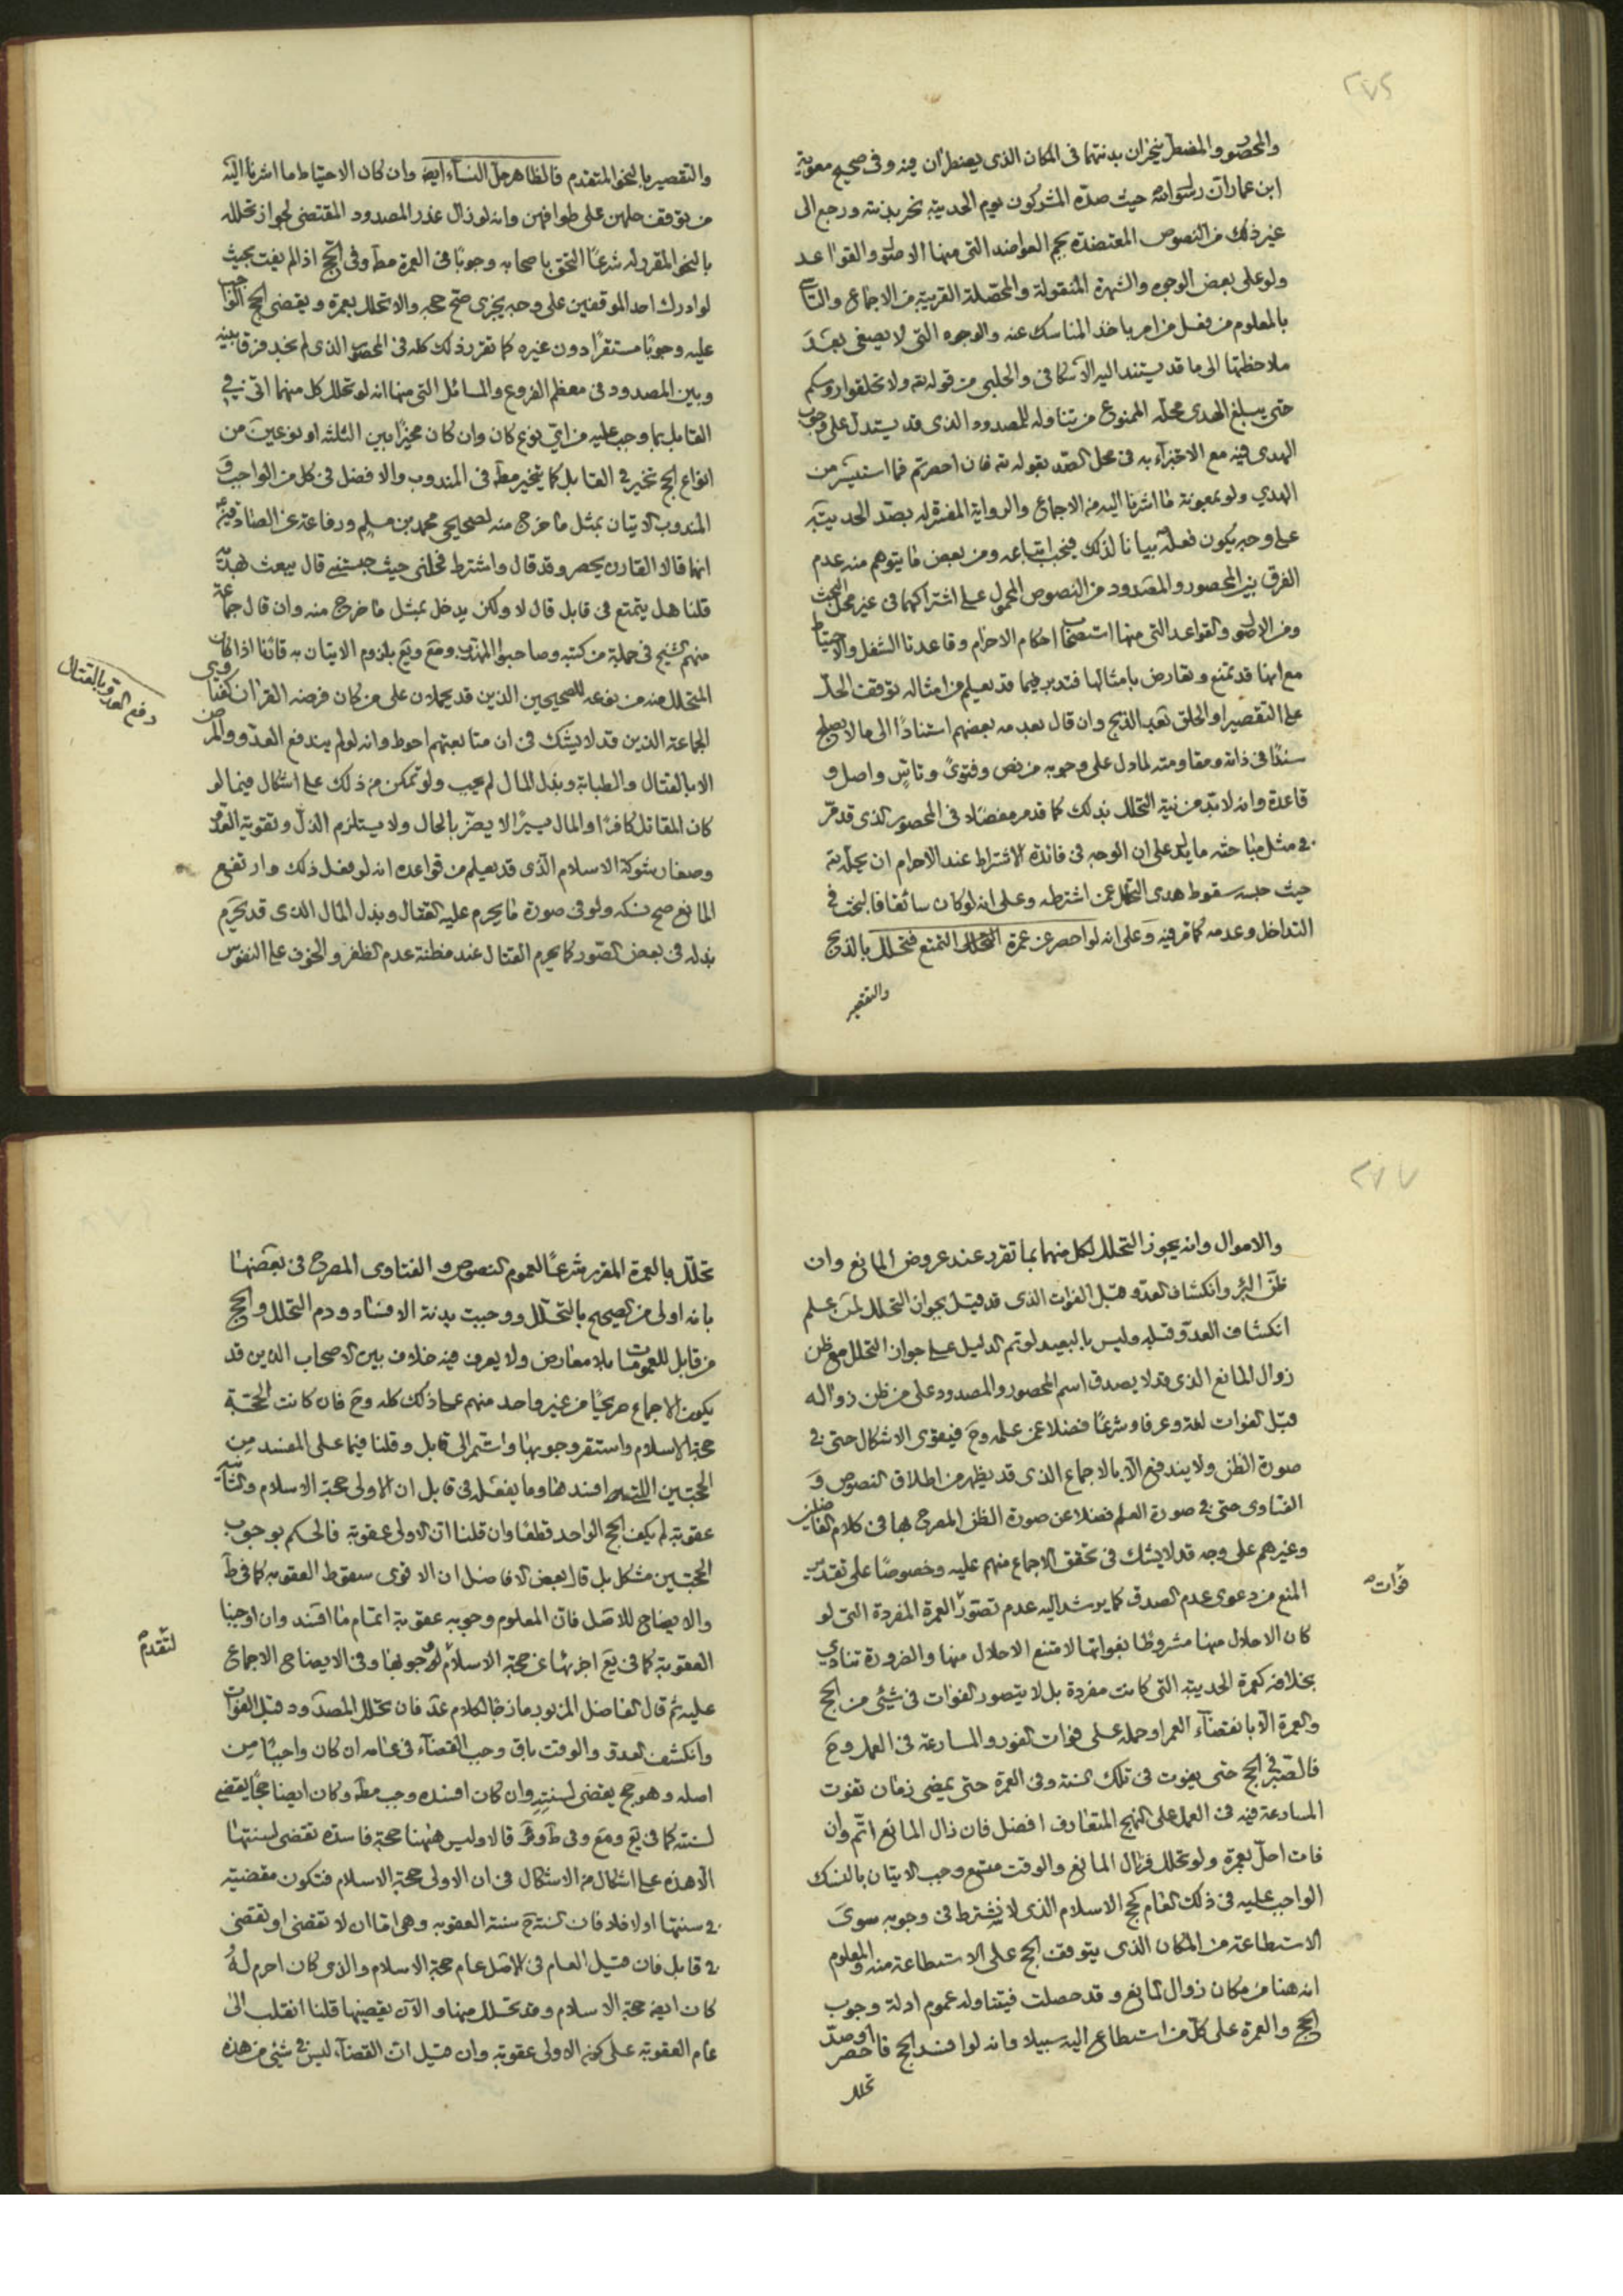 ٢٧٦
والمحصور والمضطر ينحران بدنتهما فى المكان الذى يضطران فيه وفى صحيح معوية
ابن عمار ان رسول الله حيث صدّه المشركون يوم الحديبية نحر بدنته ورجع الى
غير ذلك من النصوص المعتضدة بجم العواضد التى منها الاصول والقواعد
ولو على بعض الوجوه والشهرة المنقولة والمحصّلة القريبة من الاجماع والتأسى
بالمعلوم من فعل من امر باخذ المناسك عنه والوجوه التى لا يصغى بعد
ملاحظتها الى ما قد يستند اليه الاسكافى والحلبى من قوله تعه ولا تحلقوا رؤسكم
حتى يبلغ الهدى محله الممنوع من تناوله للمصدود الذى قد يستدل على وجوب
الهدى فيه مع الاجتزاء به فى محل الصد بقوله تعه فان احصرتم فما استيسر من
الهدي ولو بمعونة ما اشرنا اليه من الاجماع والرواية المفسرة له بصد الحديبية
على وجه يكون فعله بيانا لذلك فيجب اتباعه ومن بعض ما يتوهم منه عدم
الفرق بين المحصور والمصدود من النصوص المحمول على اشتراكهما فى غير محل البحث
ومن الاصول والقواعد التى منها استصحاب احكام الاحرام وقاعدتا الشغل والاحتياط
مع انها قد تمنع وتعارض بامثالها فتدبر فيما قد يعلم من امثاله توقف الحل
على التقصير او الحلق بعد الذبح وان قال بعدمه بعضهم استنادًا الى ما لا يصلح
سندًا فى ذاته ومقاومته لما دل على وجوبه من نص وفتوى وتأسٍ واصل و
قاعدة وانه لا بد من نية التحلل بذلك كما قدمر مفصلا فى المحصور الذى قدمر
فى مثل مباحثه ما يدل على ان الوجه فى فائدة الاشتراط عند الاحرام ان يحله تعه
حيث حبسه سقوط هدى التحلل عمن اشترطه وعلى انه لو كان سائقا فالبحث فى
التداخل وعدمه كما مر فيه وعلى انه لو احصر عن عمرة التمتع فتحلل بالذبح
والتقصير
والتقصير بالنحو المتقدم فالظاهر حل النسآء ايضه وان كان الاحتياط ما اشرنا اليه
من توقف حلهن على طوافهن وانه لو زال عذر المصدود المقتضى لجواز تحلله
بالنحو المقرر له شرعًا التحق باصحابه وجوبًا فى العمرة مطه وفى الحج اذا لم يفت بحيث
لو ادرك احد الموقفين على وجه يجزى صح حجه والا تحلل بعمرة ويقضى الحج الواجب
عليه وجوبًا مستقرًا دون غيره كما تقرر ذلك كله فى المحصور الذى لم نجد فرقا بينه
وبين المصدود فى معظم الفروع والمسائل التى منها انه لو تحلل كل منهما اتى فى
القابل بما وجب عليه من اى نوع كان وان كان مخيرًا بين الثلثه او نوعين من
انواع الحج تخير فى القابل كما يتخير مطه فى المندوب والافضل فى كل من الواجب و
المندوب الاتيان بمثل ما خرج منه لصحيحى محمد بن مسلم ورفاعة عن الصادقين
انهما قالا القارن يحصر وقد قال واشترط فحلنى حيث حبستنى قال يبعث بهديه
قلنا هل يتمتع فى قابل قال لا ولكن يدخل بمثل ما خرج منه وان قال جماعة
منهم الشيخ فى جملة من كتبه وصاحبوا المهذب ومع ويع بلزوم الاتيان به قائما اذا كان
المتحلل منه من نوعه للصحيحين الذين قد يحملان على من كان فرضه القران كفتاوى
الجماعة الذين قد لا يشك فى ان متابعتهم احوط وانه لو لم يندفع العدو والمرض
الا بالقتال والطبابة وبذل المال لم يجب ولو تمكن من ذلك على اشكال فيما لو
كان المقاتل كافرًا والمال يسيرًا لا يضرّ بالحال ولا يستلزم الذل وتقوية العدو
وصغار شوكة الاسلام الذى قد يعلم من قواعده انه لو فعل ذلك وارتفع
المانع صح نسكه ولو فى صورة ما يحرم عليه القتال وبذل المال الذى قد يحرم
بذله فى بعض الصور كما يحرم القتال عند مظنة عدم الظفر والخوف على النفوس
دفع العدو بالقتال
٢٧٧
والاموال وانه يجوز التحلل لكل منهما بما تقرر عند عروض المانع وان
ظن البرء وانكشاف العدو قبل الفوات الذى قد قيل بجواز التحلل لمن علم
انكشاف العدو قبله وليس بالبعيد لو تم الدليل على جواز التحلل مع ظن
زوال المانع الذى قد لا يصدق اسم المحصور والمصدود على من ظن زواله
قبل الفوات لغة وعرفا وشرعًا فضلا عمن علمه وح فيقوى الاشكال حتى فى
صورة الظن ولا يندفع الا بالاجماع الذى قد يظهر من اطلاق النصوص و
الفتاوى حتى فى صورة العلم فضلا عن صورة الظن المصرح بها فى كلام الفاضلين
وغيرهم على وجه قد لا يشك فى تحقق الاجماع منهم عليه وخصوصًا على تقدير
المنع من دعوى عدم الصدق كما يرشد اليه عدم تصوّر العمرة المفردة التى لو
كان الاحلال منها مشروطًا بفواتها لامتنع الاحلال منها والضرورة تنادى
بخلافه كعمرة الحديبية التى كانت مفردة بل لا يتصور الفوات فى شئى من الحج
والعمرة الا بانقضاء العمر او حمله على فوات الفور والمسارعة فى العمل وح
فالصبر فى الحج حتى يفوت فى تلك السنة وفى العمرة حتى يمضى زمان تفوت
المسارعة فيه فى العمل على النهج المتعارف افضل فان زال المانع اتم وان
فات احل بعمرة ولو تحلل فزال المانع والوقت متسع وجب الاتيان بالنسك
الواجب عليه فى ذلك العام كحج الاسلام الذى لا يشترط فى وجوبه سوى
الاستطاعة من المكان الذى يتوقف الحج على الاستطاعة منه والمعلوم
انه هنا من مكان زوال المانع وقد حصلت فيتناوله عموم ادلة وجوب
الحج والعمرة على كل من استطاع اليه سبيلا وانه لو افسد الحج فاحصر او صدّ
تحلل
فوات
تحلّل بالعمرة المقرر شرعًا لعموم النصوص والفتاوى المصرح فى بعضها
بانه اولى من الصحيح بالتحلل ووجبت بدنة الافساد ودم التحلل والحج
من قابل للعمومات بلا معارض ولا يعرف فيه خلاف بين الاصحاب الذين قد
يكون الاجماع صريحًا من غير واحد منهم على ذلك كله وح فان كانت الحجة
حجة الاسلام واستقر وجوبها واستمر الى قابل وقلنا فيما على المفسد من
الحجتين افسدها وما يفعله فى قابل ان الاولى حجة الاسلام والثانية
عقوبة لم يكف الحج الواحد قطعًا وان قلنا ان الاولى عقوبة فالحكم بوجوب
الحجتين مشكل بل قال بعض الافاضل ان الاقوى سقوط العقوبه كما فى ط
والايضاح للاصل فان المعلوم وجوبه عقوبة اتمام ما افسد وان اوجبنا
العقوبة كما فى يع اجزئتا عن حجة الاسلام وفى الايضاح الاجماع
عليه ثم قال الفاضل المزبور مازجا لكلام عد فان تحلل المصدود قبل الفوات
وانكشف العدو والوقت باق وجب القضآء فى عامه ان كان واجبًا من
اصله وهو حج يقضى لسنته وان كان افسده وجب مطه وكان ايضا حجًا يقضى
لسنته كما فى يع ومع وفى ط قالا وليس ههنا حجة فاسدة تقضى لسنتها
الا هذه على اشكال من الاشكال فى ان الاولى حجة الاسلام فتكون مقضية
فى سنتها اولا فلا فان السنة ح سنة العقوبه وهى اما ان لا تقضى او تقضى
فى قابل فان قيل العام فى الاصل عام حجة الاسلام والذى كان احرم له
كان ايضه حجة الاسلام وقد تحلل منها والآن يقضيها قلنا انقلب الى
عام العقوبة على كون الاولى عقوبة وان قيل ان القضآء ليس فى شئى من هذه
لتقدم